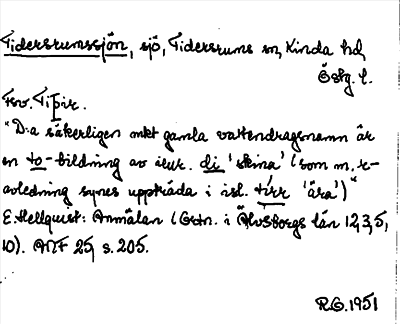 Tidersrumssjön, sjö, Tidersrums sn, Kinda hd,
Östg. l.
Fsv. Tiþir.
"D:a säkerligen mkt gamla vattendragsnamn är
en to-bildning av ieur. di 'skina' (som m. r-
avledning synes uppträda i isl. tírr 'ära')"
E. Hellquist: Anmälan (Ortn. i Älvsborgs län 12, 3, 5,
10). ANF 25, s. 205.
R.G. 1951